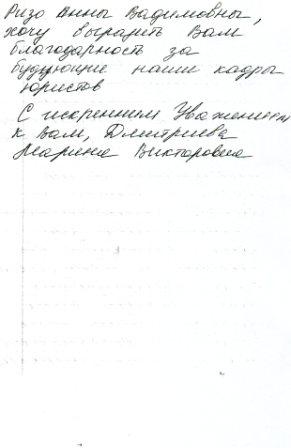 Ризо Анны Вадимовны,
хочу выразить Вам
благодарность за
будующие наши кадры
юристов
С искренним Уважением
к Вам, Дмитриева
Марина Викторовна